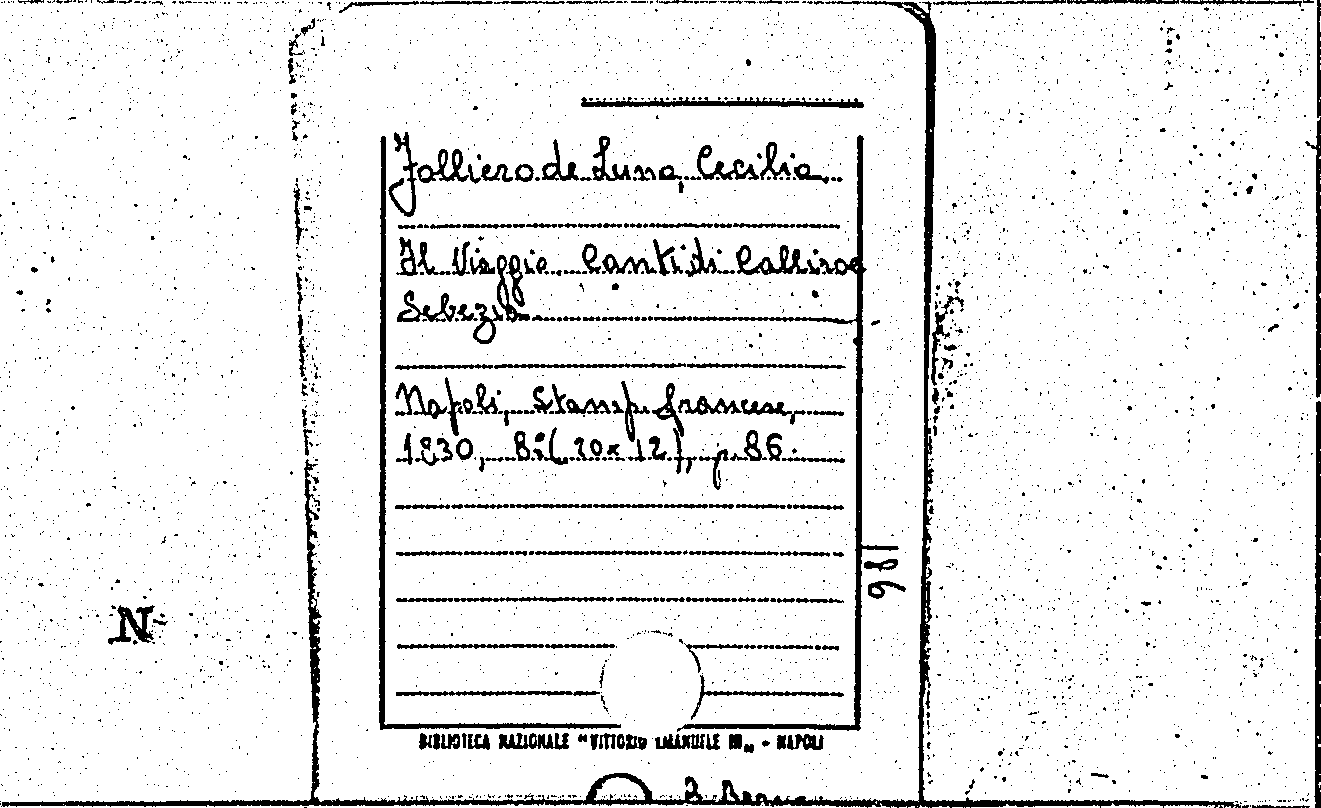 Folliero de Luna, Cecilia
Il Viaggio. Canti di Calliroe
Sebezia.
Napoli, Stamp. francese,
1830, 8°( 20x 12), p. 86.
186
N
BIBLIOTECA NAZIONALE "VITTORIO EMANUELE III" - NAPOLI